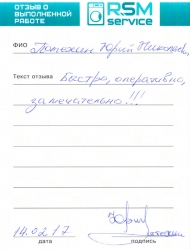 ОТЗЫВ О
ВЫПОЛНЕННОЙ
РАБОТЕ
RSM
service
ФИО Потехин Юрий Николаев,
Текст отзыва Быстро, оперативно,
замечательно!!!
14.02.17
дата подпись